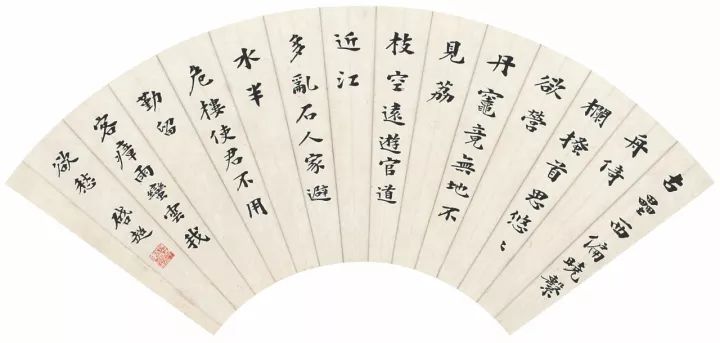 古壘西偏曉繫
舟倚
欄搔首思悠〻
欲營
丹竈竟無地不
見荔
枝空遠遊官道
近江
多亂石人家避
水半
危樓使君不用
勤留
客瘴雨蠻雲我
欲愁 啓超